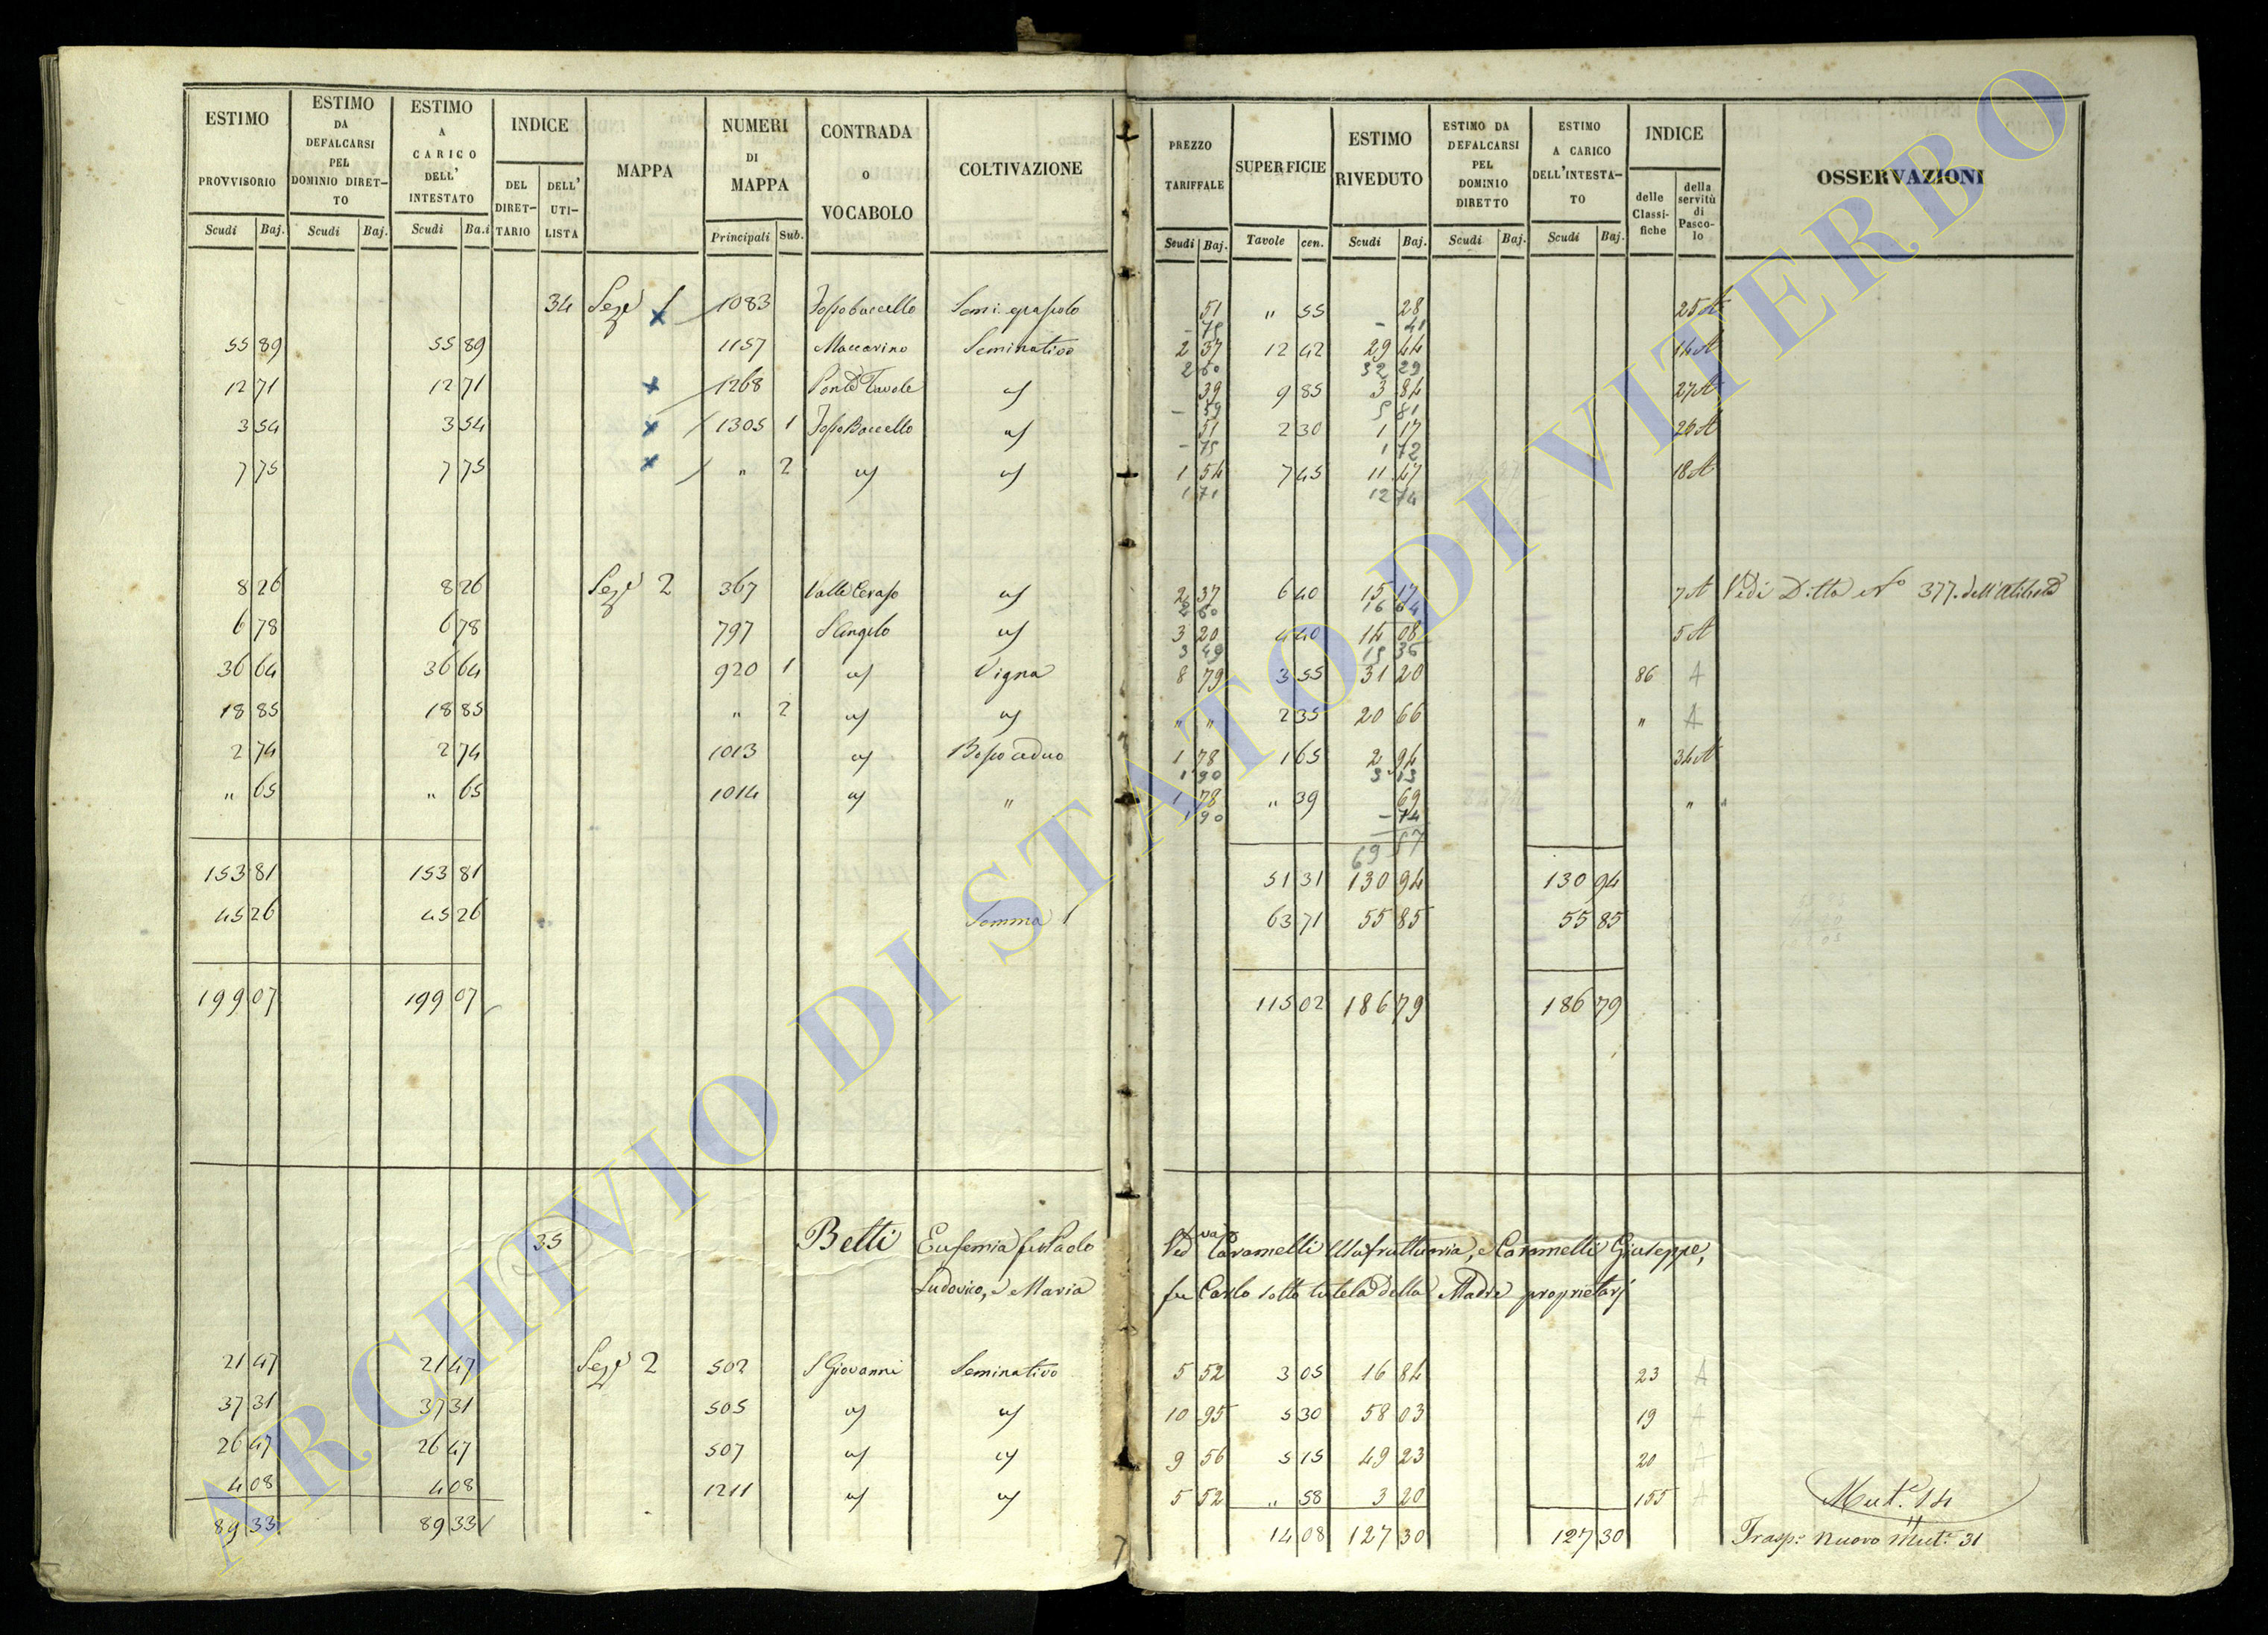 ESTIMO PROVVISORIO Scudi Baj. | ESTIMO DA DEFALCARSI PEL DOMINIO DIRETTO Scudi Baj. | ESTIMO A CARICO DELL' INTESTATO Scudi Ba.i | INDICE DEL DIRETTARIO DELL' UTILISTA | MAPPA | NUMERI DI MAPPA Principali Sub. | CONTRADA O VOCABOLO | COLTIVAZIONE | PREZZO TARIFFALE Scudi Baj. | SUPERFICIE Tavole cen. | ESTIMO RIVEDUTO Scudi Baj. | ESTIMO DA DEFALCARSI PEL DOMINIO DIRETTO Scudi Baj. | ESTIMO A CARICO DELL'INTESTATO Scudi Baj. | INDICE delle Classifiche della servitù di Pascolo | OSSERVAZIONI
34 Seze 1 1083 51 " 55 28 25 A
- 75 - 41
55 89 55 89 1157 Maccarino Seminativo 2 37 12 42 29 44 14 A
2 60 32 29
12 71 12 71 1268 Ponte Tavole 39 9 85 3 84 27 A
- 59 5 81
3 54 3 54 1305 1 51 2 30 1 17 26 A
- 75 1 72
7 75 7 75 " 2 1 54 7 45 11 47 18 A
1 71 12 74
8 26 8 26 Seze 2 367 Valle Ceraso 2 37 6 40 15 17 7 A Vedi Ditta No 377. dell'Utilista
2 60 16 64
6 78 6 78 797 S Angelo 3 20 4 40 14 08 5 A
3 49 15 36
36 64 36 64 920 1 Vigna 8 79 3 55 31 20 86 A
18 85 18 85 " 2 " " 2 35 20 66 " A
2 74 2 74 1013 Bosco ceduo 1 78 1 65 2 94 34 A
1 90 3 13
" 65 " 65 1014 " 1 78 " 39 69 " "
1 90 - 74
69 57
153 81 153 81 51 31 130 94 130 94
45 26 45 26 Somma 1 63 71 55 85 55 85
199 07 199 07 115 02 186 79 186 79
35 Betti Eufemia fu Paolo Va Caramelli Usufruttuaria, e Caramelli Giuseppe,
Ludovico, e Maria fu Carlo sotto tutela della Madre proprietarj
21 47 21 47 Seze 2 502 S Giovanni Seminativo 5 52 3 05 16 84 23 A
37 31 37 31 505 10 95 5 30 58 03 19 A
26 47 26 47 507 9 56 5 15 49 23 20 A
4 08 4 08 1211 5 52 " 58 3 20 155 A Mut.e 14
89 33 89 33 14 08 127 30 127 30 Trasp: nuovo Mut: 31
ARCHIVIO DI STATO DI VITERBO